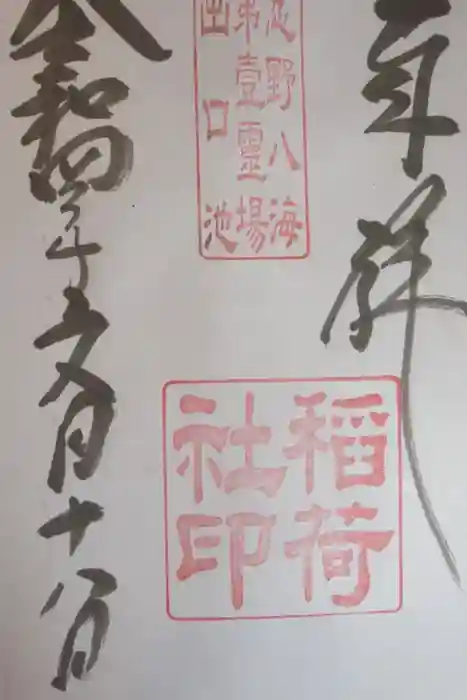 忍野八海
第壹靈場
出口池
稲荷
社印
令和四年文月十八日